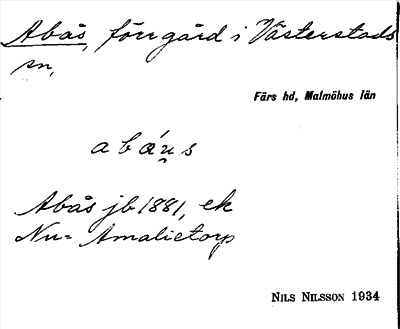 Abås, förr gård i Västerstads
sn,
Färs hd, Malmöhus län
abáu̯s
Abås jb 1881, ek
Nu = Amalietorp
NILS NILSSON 1934